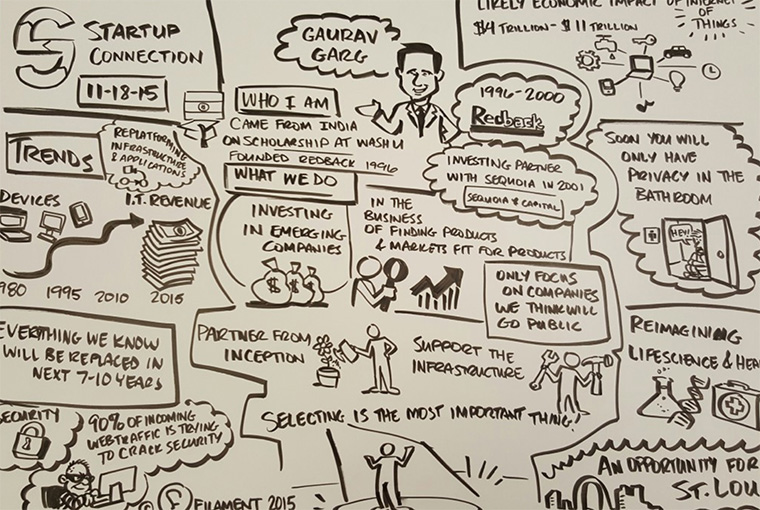 STARTUP
CONNECTION
11-18-15
GAURAV
GARG
LIKELY ECONOMIC IMPACT OF INTERNET
OF
THINGS
$4 TRILLION - $11 TRILLION
WHO I AM
CAME FROM INDIA
ON SCHOLARSHIP AT WASH U
FOUNDED REDBACK 1996
1996-2000
Redback
INVESTING PARTNER
WITH SEQUOIA IN 2001
SEQUOIA CAPITAL
TRENDS
REPLATFORMING
INFRASTRUCTURE
& APPLICATIONS
DEVICES
I.T. REVENUE
980 1995 2010 2015
WHAT WE DO
INVESTING
IN EMERGING
COMPANIES
IN THE
BUSINESS
OF FINDING PRODUCTS
& MARKETS FIT FOR PRODUCTS
ONLY FOCUS
ON COMPANIES
WE THINK WILL
GO PUBLIC
SOON YOU WILL
ONLY HAVE
PRIVACY IN THE
BATHROOM
HEY!
EVERYTHING WE KNOW
WILL BE REPLACED IN
NEXT 7-10 YEARS
PARTNER FROM
INCEPTION
SUPPORT THE
INFRASTRUCTURE
REIMAGINING
LIFESCIENCE & HEA
SELECTING IS THE MOST IMPORTANT THING!
SECURITY
90% OF INCOMING
WEB TRAFFIC IS TRYING
TO CRACK SECURITY
FILAMENT 2015
AN OPPORTUNITY FOR
ST. LOU